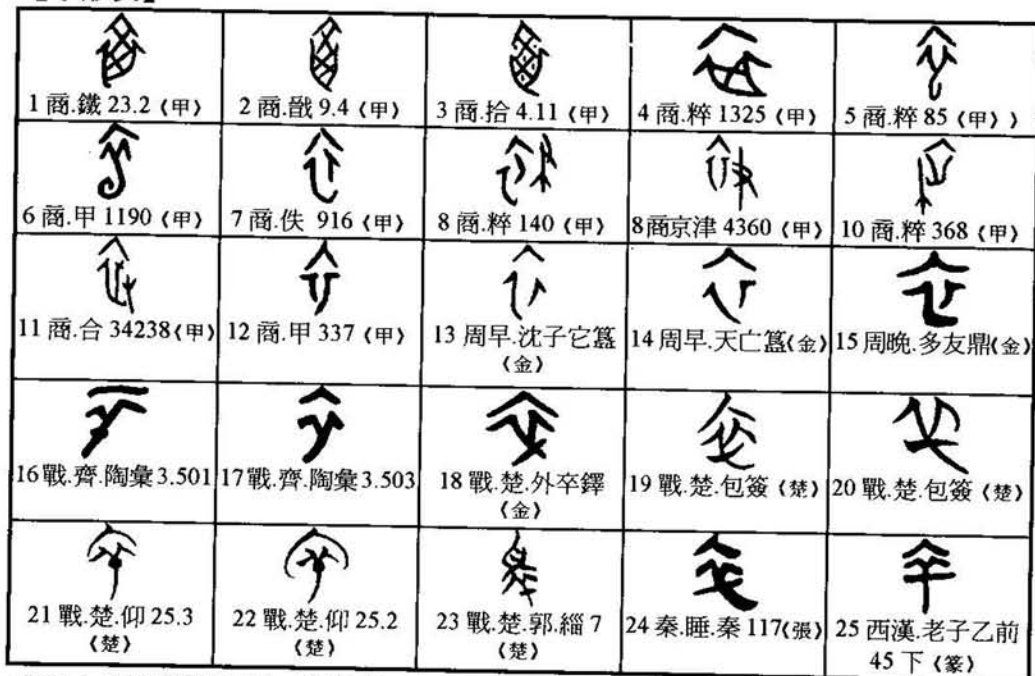 1 商.鐵 23.2〈甲〉
2 商.戩 9.4〈甲〉
3 商.拾 4.11〈甲〉
4 商.粹 1325〈甲〉
5 商.粹 85〈甲〉)
6 商.甲 1190〈甲〉
7 商.佚 916〈甲〉
8 商.粹 140〈甲〉
8商京津 4360〈甲〉
10 商.粹 368〈甲〉
11 商.合 34238〈甲〉
12 商.甲 337〈甲〉
13 周早.沈子它簋
〈金〉
14 周早.天亡簋〈金〉
15 周晚.多友鼎〈金〉
16 戰.齊.陶彙 3.501
17 戰.齊.陶彙 3.503
18 戰.楚.外卒鐸
〈金〉
19 戰.楚.包簽〈楚〉
20 戰.楚.包簽〈楚〉
21 戰.楚.仰 25.3
〈楚〉
22 戰.楚.仰 25.2
〈楚〉
23 戰.楚.郭.緇 7
〈楚〉
24 秦.睡.秦 117〈張〉
25 西漢.老子乙前
45 下〈篆〉